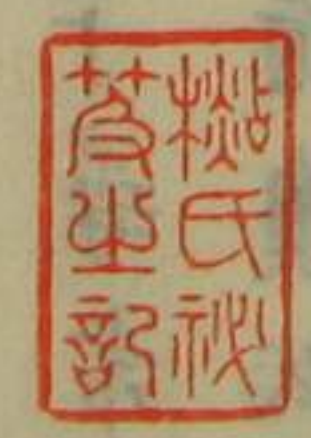 檆氏祕
芨之記